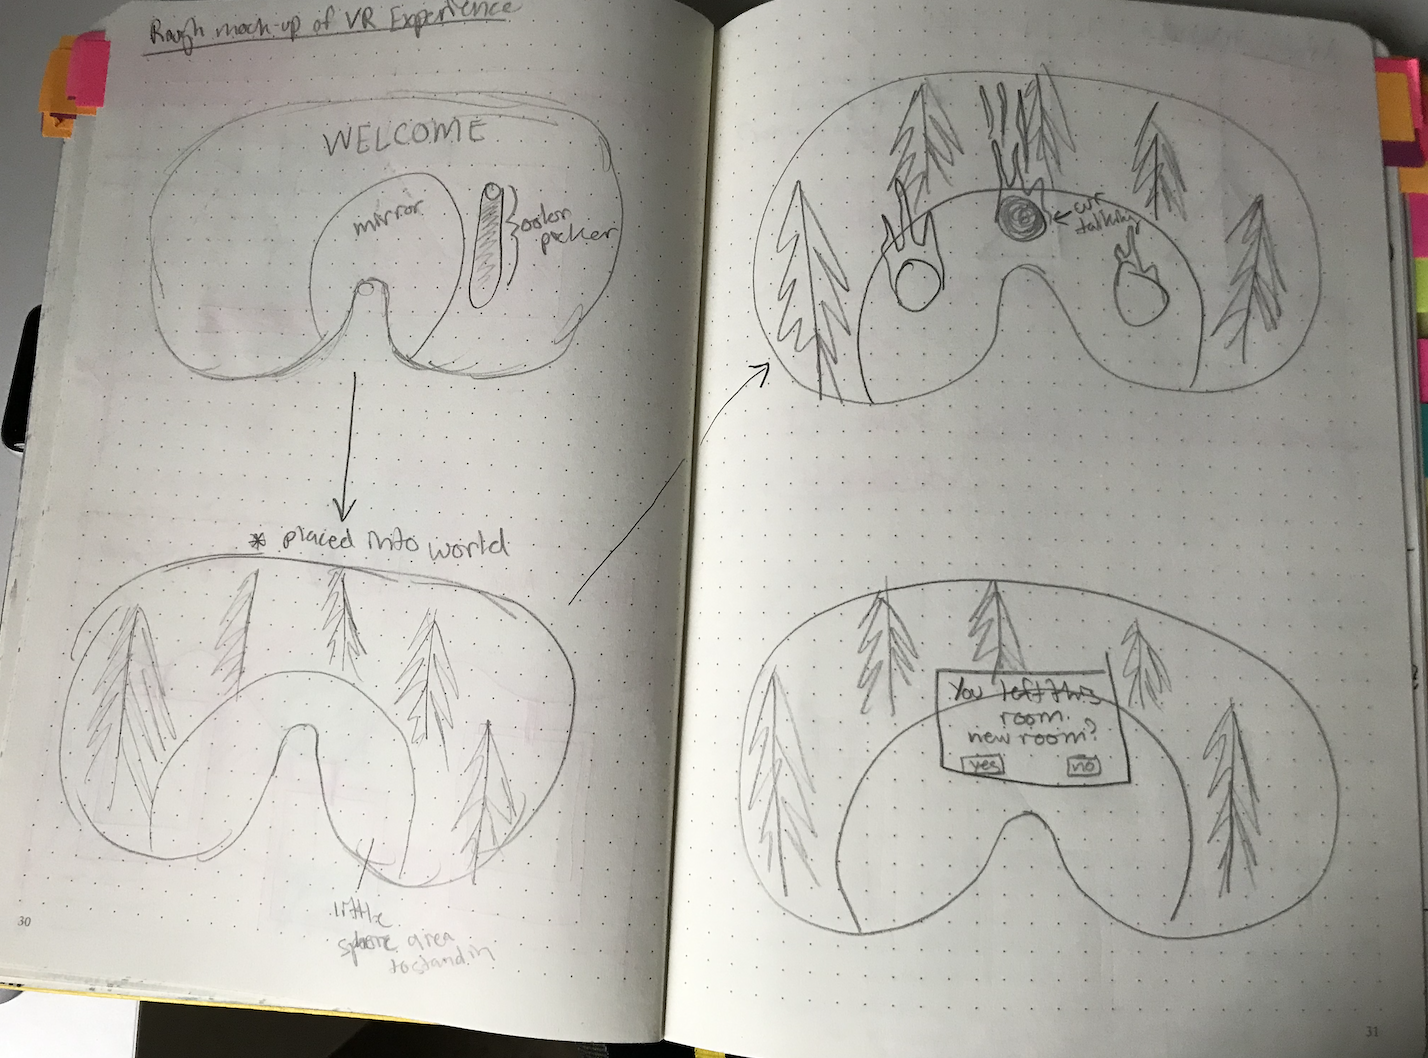 Rough mock-up of VR Experience
WELCOME
mirror
color
picker
* placed into world
little
sphere area
to stand in
30
talking
You left this
room.
new room?
yes
no
31